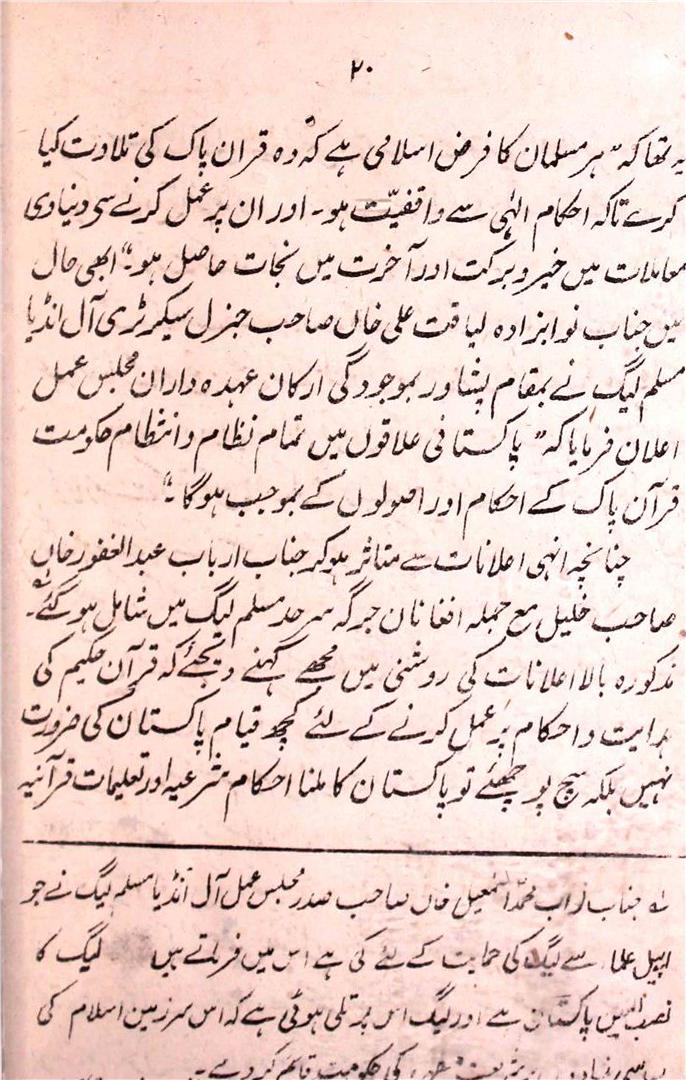 ۲۰
یہ تھا کہ "ہر مسلمان کا فرض اسلامی ہے کہ وہ قران پاک کی تلاوت کیا
کرے تاکہ احکام الہٰی سے واقفیّت ہو۔ اور ان پر عمل کرنے سے دنیاوی
معاملات میں خیر و برکت اور آخرت میں نجات حاصل ہو"۔ ابھی حال
میں جناب نوابزادہ لیاقت علی خاں صاحب جنرل سیکرٹری آل انڈیا
مسلم لیگ نے بمقام پشاور بموجودگی ارکان عہدہ داران مجلس عمل
اعلان فرمایا کہ "پاکستانی علاقوں میں تمام نظام و انتظام حکومت
قرآن پاک کے احکام اور اصولوں کے بموجب ہوگا۔"
چنانچہ انہی اعلانات سے متاثر ہوکر جناب ارباب عبدالغفور خاں
صاحب خلیل مع جملہ افغانان جرگہ سرحد مسلم لیگ میں شامل ہوگئے۔ لہ
مذکورہ بالا اعلانات کی روشنی میں مجھے کہنے دیجئے کہ قرآن حکیم کی
ہدایت و احکام پر عمل کرنے کے لئے کچھ قیام پاکستان کی ضرورت
نہیں بلکہ سچ پوچھئے تو پاکستان کا ملنا احکام شرعیہ اور تعلیمات قرآنیہ
لہ جناب نواب محمد اسمٰعیل خاں صاحب صدر مجلس عمل آل انڈیا مسلم لیگ نے جو
اپیل علماء سے لیگ کی حمایت کے لئے کی ہے اس میں فرماتے ہیں لیگ کا
نصب العین پاکستان ہے اور لیگ اس پر تلی ہوئی ہے کہ اس سرزمین اسلام کی
کی حکومت قائم کر دے۔